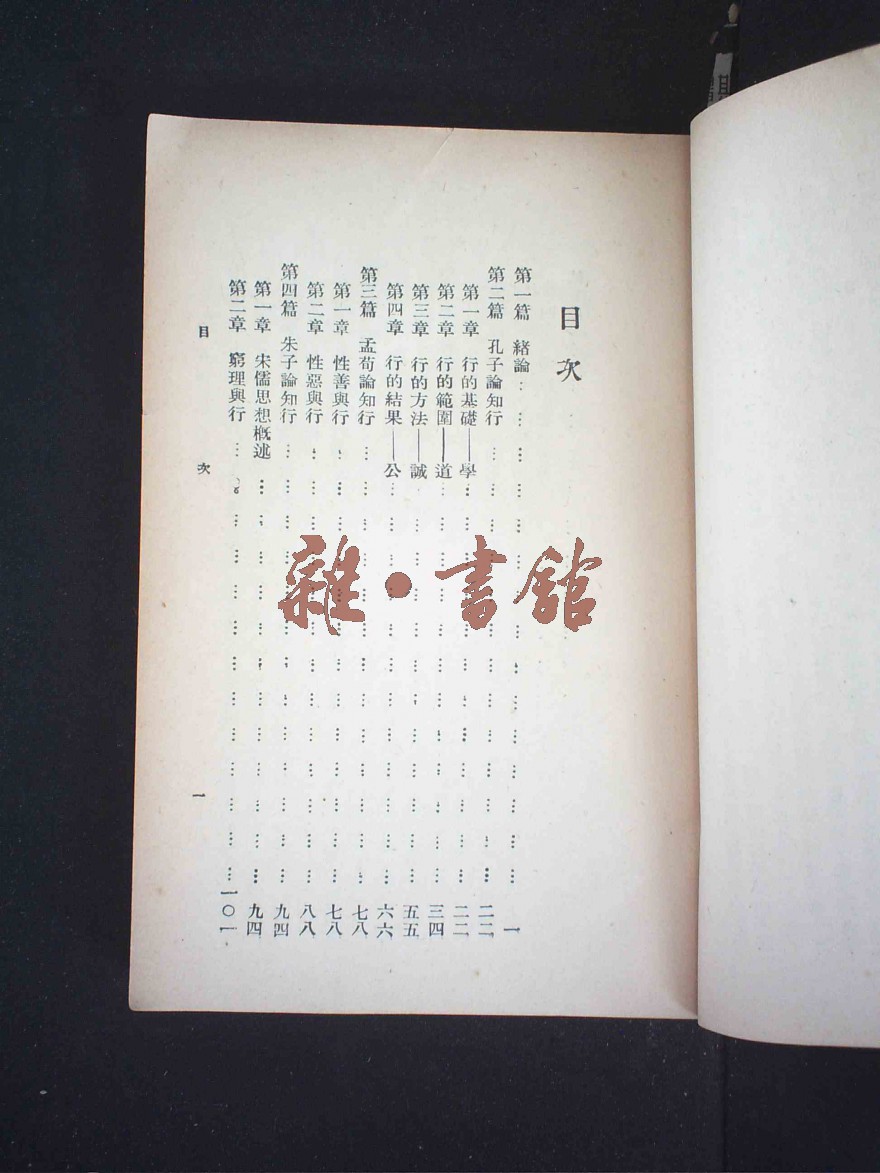 目次
第一篇 緒論……一
第二篇 孔子論知行……二二
第一章 行的基礎——學……二二
第二章 行的範圍——道……三四
第三章 行的方法——誠……五五
第四章 行的結果——公……六六
第三篇 孟荀論知行……七八
第一章 性善與行……七八
第二章 性惡與行……八八
第四篇 朱子論知行……九四
第一章 宋儒思想概述……九四
第二章 窮理與行……一〇一
目次 一
雜·書館